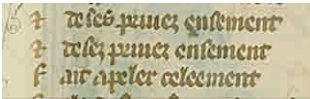 ⁊ deses priuez ensement
⁊ desez priuez ensement
F ait apeler celeement